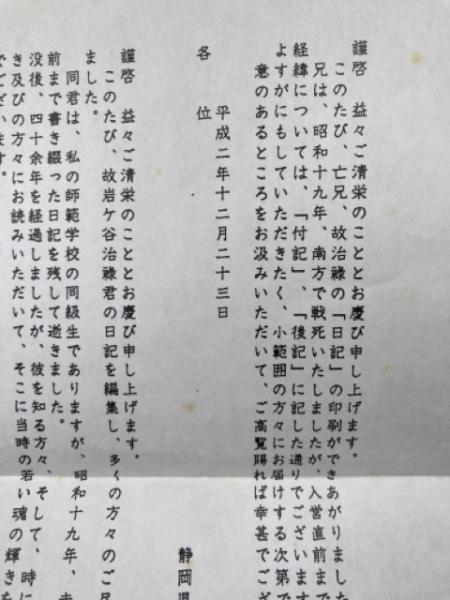 謹啓 益々ご清栄のこととお慶び申し上げます。
このたび、亡兄、故治祿の「日記」の印刷ができあがりました
兄は、昭和十九年、南方で戦死いたしましたが、入営直前まで
経緯については、「付記」、「後記」に記した通りでございます
よすがにもしていただきたく、小範囲の方々にお届けする次第で
意のあるところをお汲みいただいて、ご高覧賜れば幸甚でござ
平成二年十二月二十三日
静岡県
各 位
謹啓 益々ご清栄のこととお慶び申し上げます。
このたび、故岩ケ谷治祿君の日記を編集し、多くの方々のご
ました。
同君は、私の師範学校の同級生でありますが、昭和十九年、
前まで書き綴った日記を残して逝きました。
没後、四十余年を経過しましたが、彼を知る方々、そして、時に
き及びの方々にお読みいただいて、そこに当時の若い魂の輝きを
でございます。